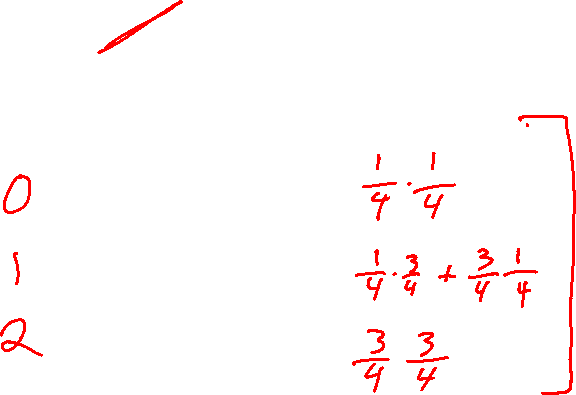 0 1/4 · 1/4
1 1/4 · 3/4 + 3/4 1/4
2 3/4 3/4